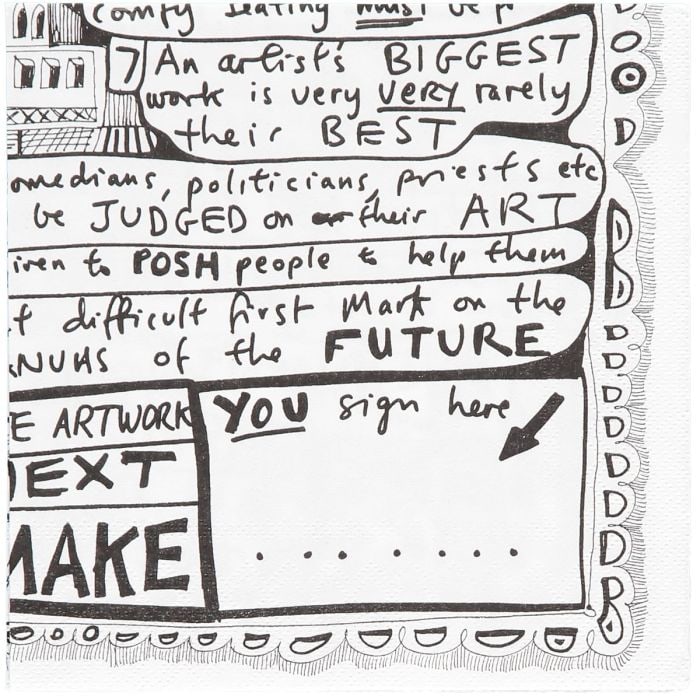 comfy seating must be
7 An artist's BIGGEST
work is very VERY rarely
their BEST
omedians, politicians, priests etc
be JUDGED on their ART
iven to POSH people to help them
t difficult first Mark on the
NUHS of the FUTURE
E ARTWORK
NEXT
MAKE
YOU sign here